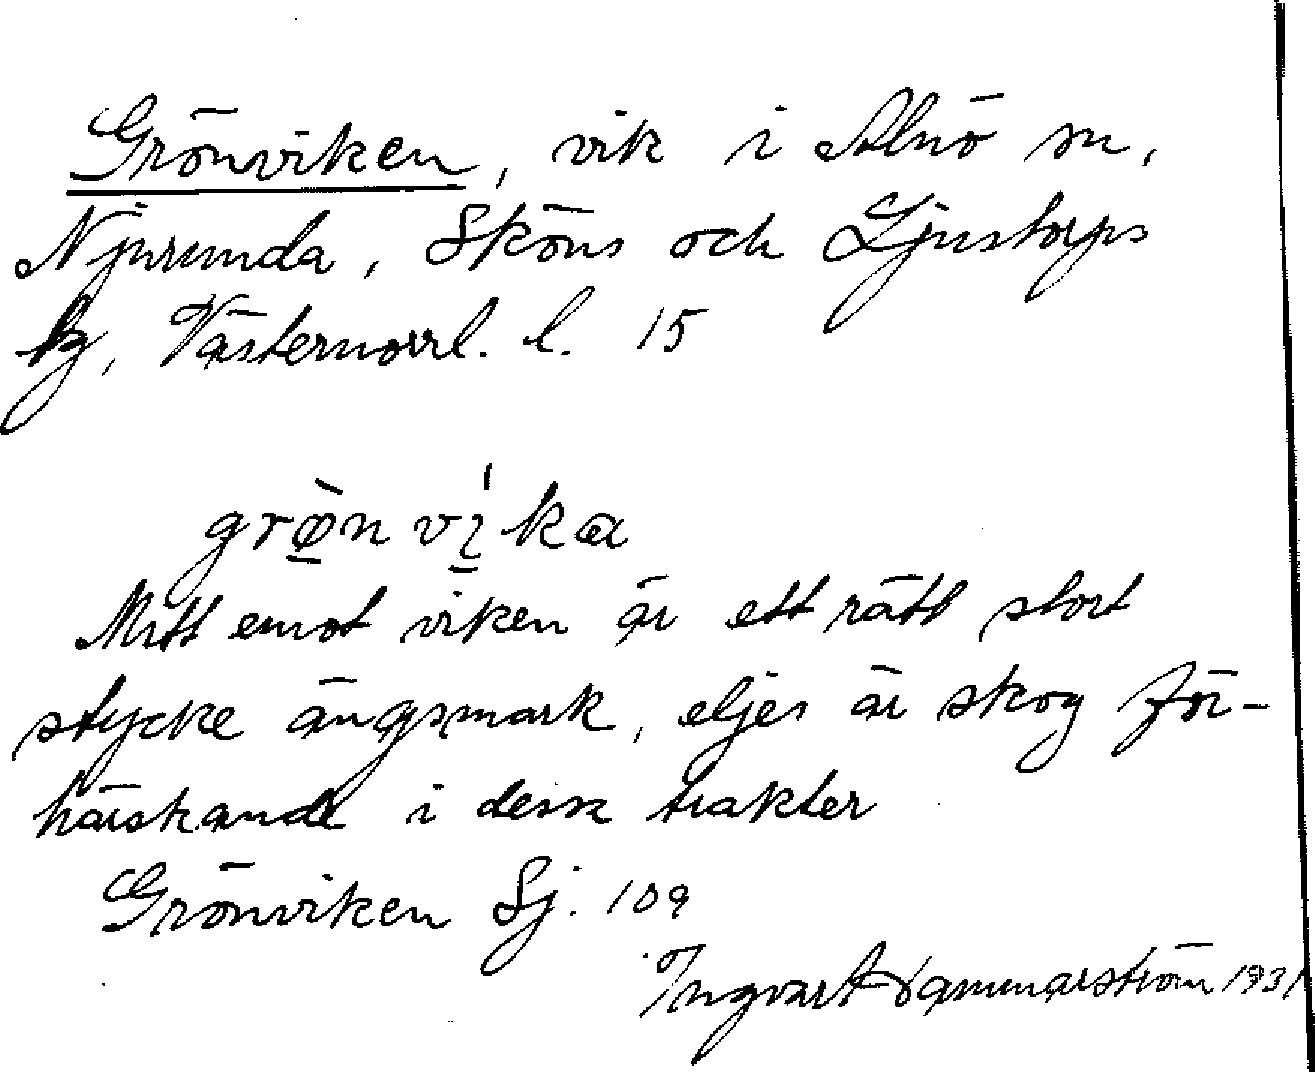 Grönviken, vik i Alnö sn,
Njurunda, Sköns och Ljustorps
tg, Västernorrl. l. 15
grø̀nvı̍ka
Mitt emot viken är ett rätt stort
stycke ängsmark, eljes är skog för-
härskande i dessa trakter
Grönviken Sj. 109
Ingvart Hammarström 1931